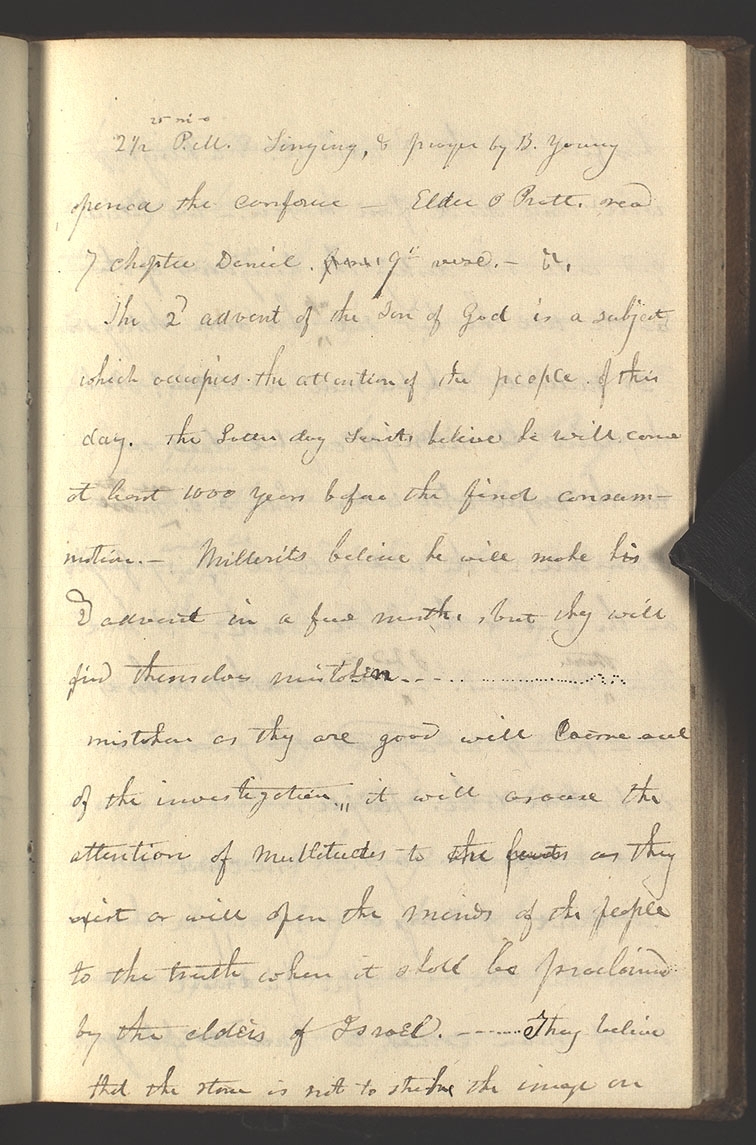 2 1/2 P.M. Singing, & prayer by B. Young
opened the confrence — Elder O Pratt. read
7 chapter Daniel. from 9th verse. — &c.
The 2d advent of the Son of God is a subject
which occupies the attention of the people of this
day. the Latter day Saints believe he will come
at least 1000 years before the final consum-
mation. — Millerits believe he will make his
2d advent in a few months, but they will
find themselves mistaken
mistaken as they are good will come out
of the investigation,, it will arouse the
attention of multitudes to the facts as they
exist or will open the minds of the people
to the truth when it shall be proclaimed
by the elders of Israel. — They believe
that the stone is not to strike the image on